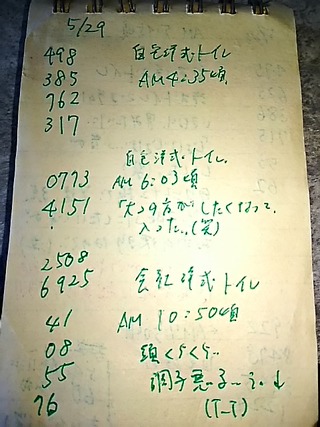 5/29
498 自宅洋式トイレ
385 AM4:35頃
762
317
自宅洋式トイレ
0773 AM 6:03頃
4151 「大」の方がしたくなって、
入った。(笑)
2508
6925 会社洋式トイレ
41 AM 10:50頃
08 頭くらくら…
55 調子悪い子…
76 (T_T)